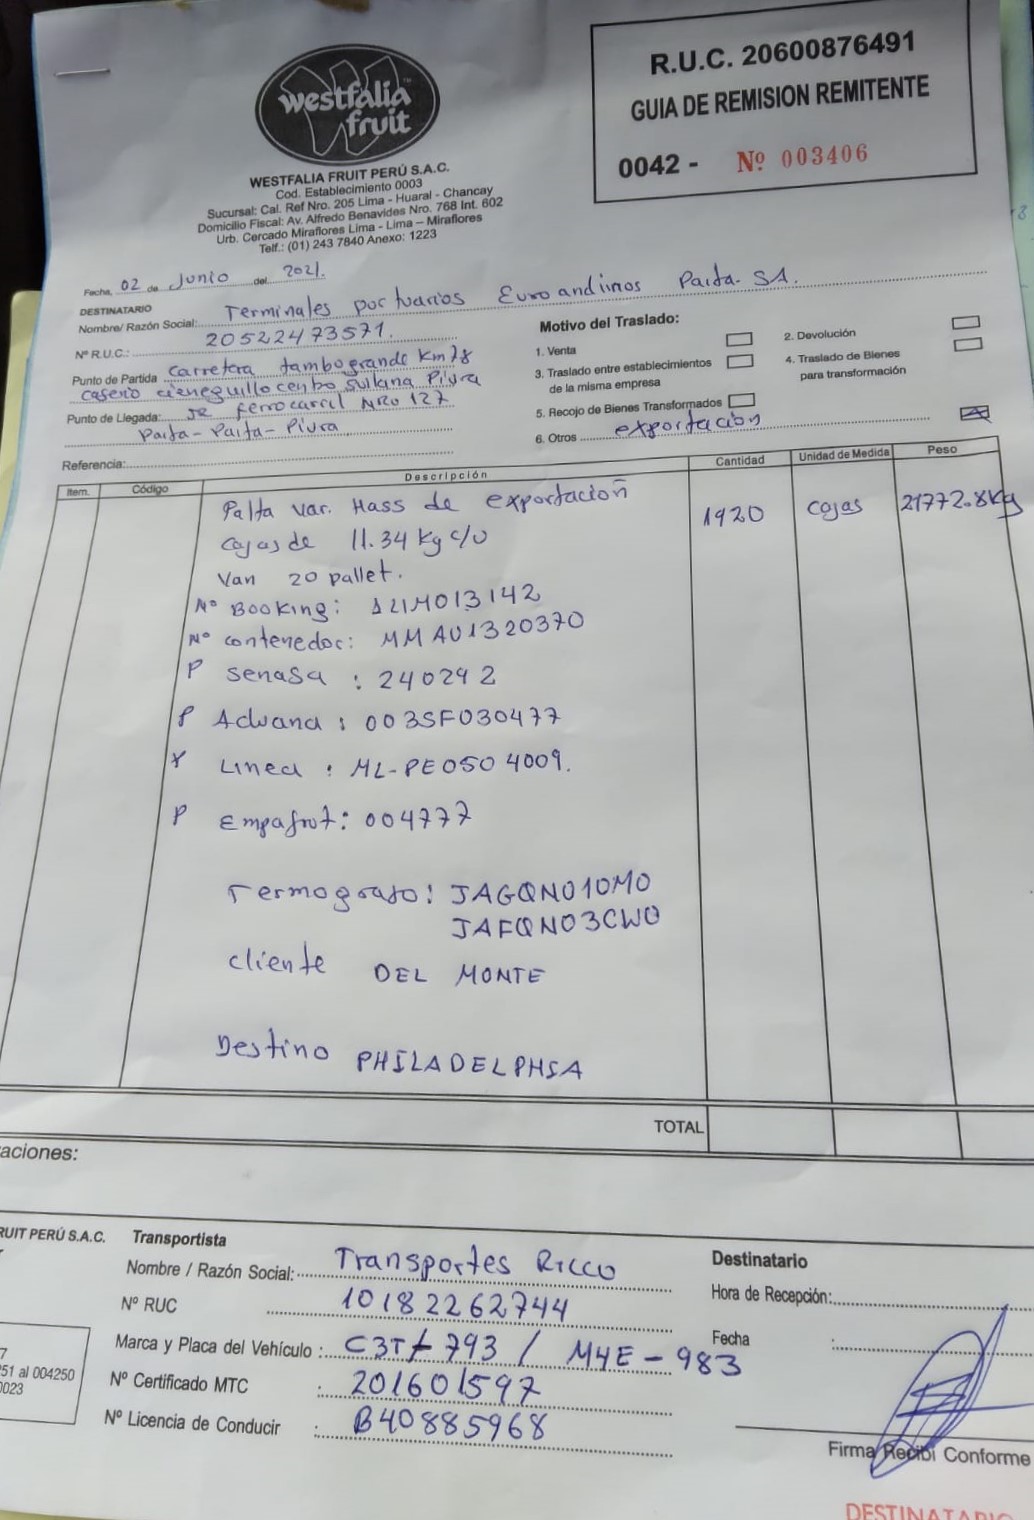 westfalia
fruit
WESTFALIA FRUIT PERÚ S.A.C.
Cod. Establecimiento 0003
Sucursal: Cal. Ref Nro. 205 Lima - Huaral - Chancay
Domicilio Fiscal: Av. Alfredo Benavides Nro. 768 Int. 602
Urb. Cercado Miraflores Lima - Lima – Miraflores
Telf.: (01) 243 7840 Anexo: 1223
R.U.C. 20600876491
GUIA DE REMISION REMITENTE
0042 - Nº 003406
Fecha, 02 de Junio del 2021.
DESTINATARIO
Nombre/ Razón Social: Terminales portuarios Euroandinos Paita. SA.
Nº R.U.C.: 20522473571.
Punto de Partida carretera tambogrande Km 28
caserio cieneguillo centro sullana Piura
Punto de Llegada: Jr ferrocarril NRO 127
Paita-Paita-Piura
Referencia:
Motivo del Traslado:
1. Venta
2. Devolución
3. Traslado entre establecimientos
de la misma empresa
4. Traslado de Bienes
para transformación
5. Recojo de Bienes Transformados
6. Otros exportación
Item. Código Descripción Cantidad Unidad de Medida Peso
Palta var. Hass de exportación 1920 cajas 21772.8Kg
cajas de 11.34 Kg c/u
Van 20 pallet.
Nº Booking: 121M013142
Nº contenedor: MMAU1320370
P Senasa : 240292
P Aduana : 003SF030477
Linea : ML-PE0504009.
P Empafrut: 004777
Termografo: JAGQN010M0
JAFQN03CW0
cliente DEL MONTE
Destino PHILADELPHIA
TOTAL
aciones:
RUIT PERÚ S.A.C.
7
51 al 004250
0023
Transportista
Nombre / Razón Social: Transportes Ricco
Nº RUC 10182262744
Marca y Placa del Vehículo : C3T-793 / M4E-983
Nº Certificado MTC : 201601597
Nº Licencia de Conducir : B40885968
Destinatario
Hora de Recepción:
Fecha :
Firma Recibi Conforme
DESTINATARIO